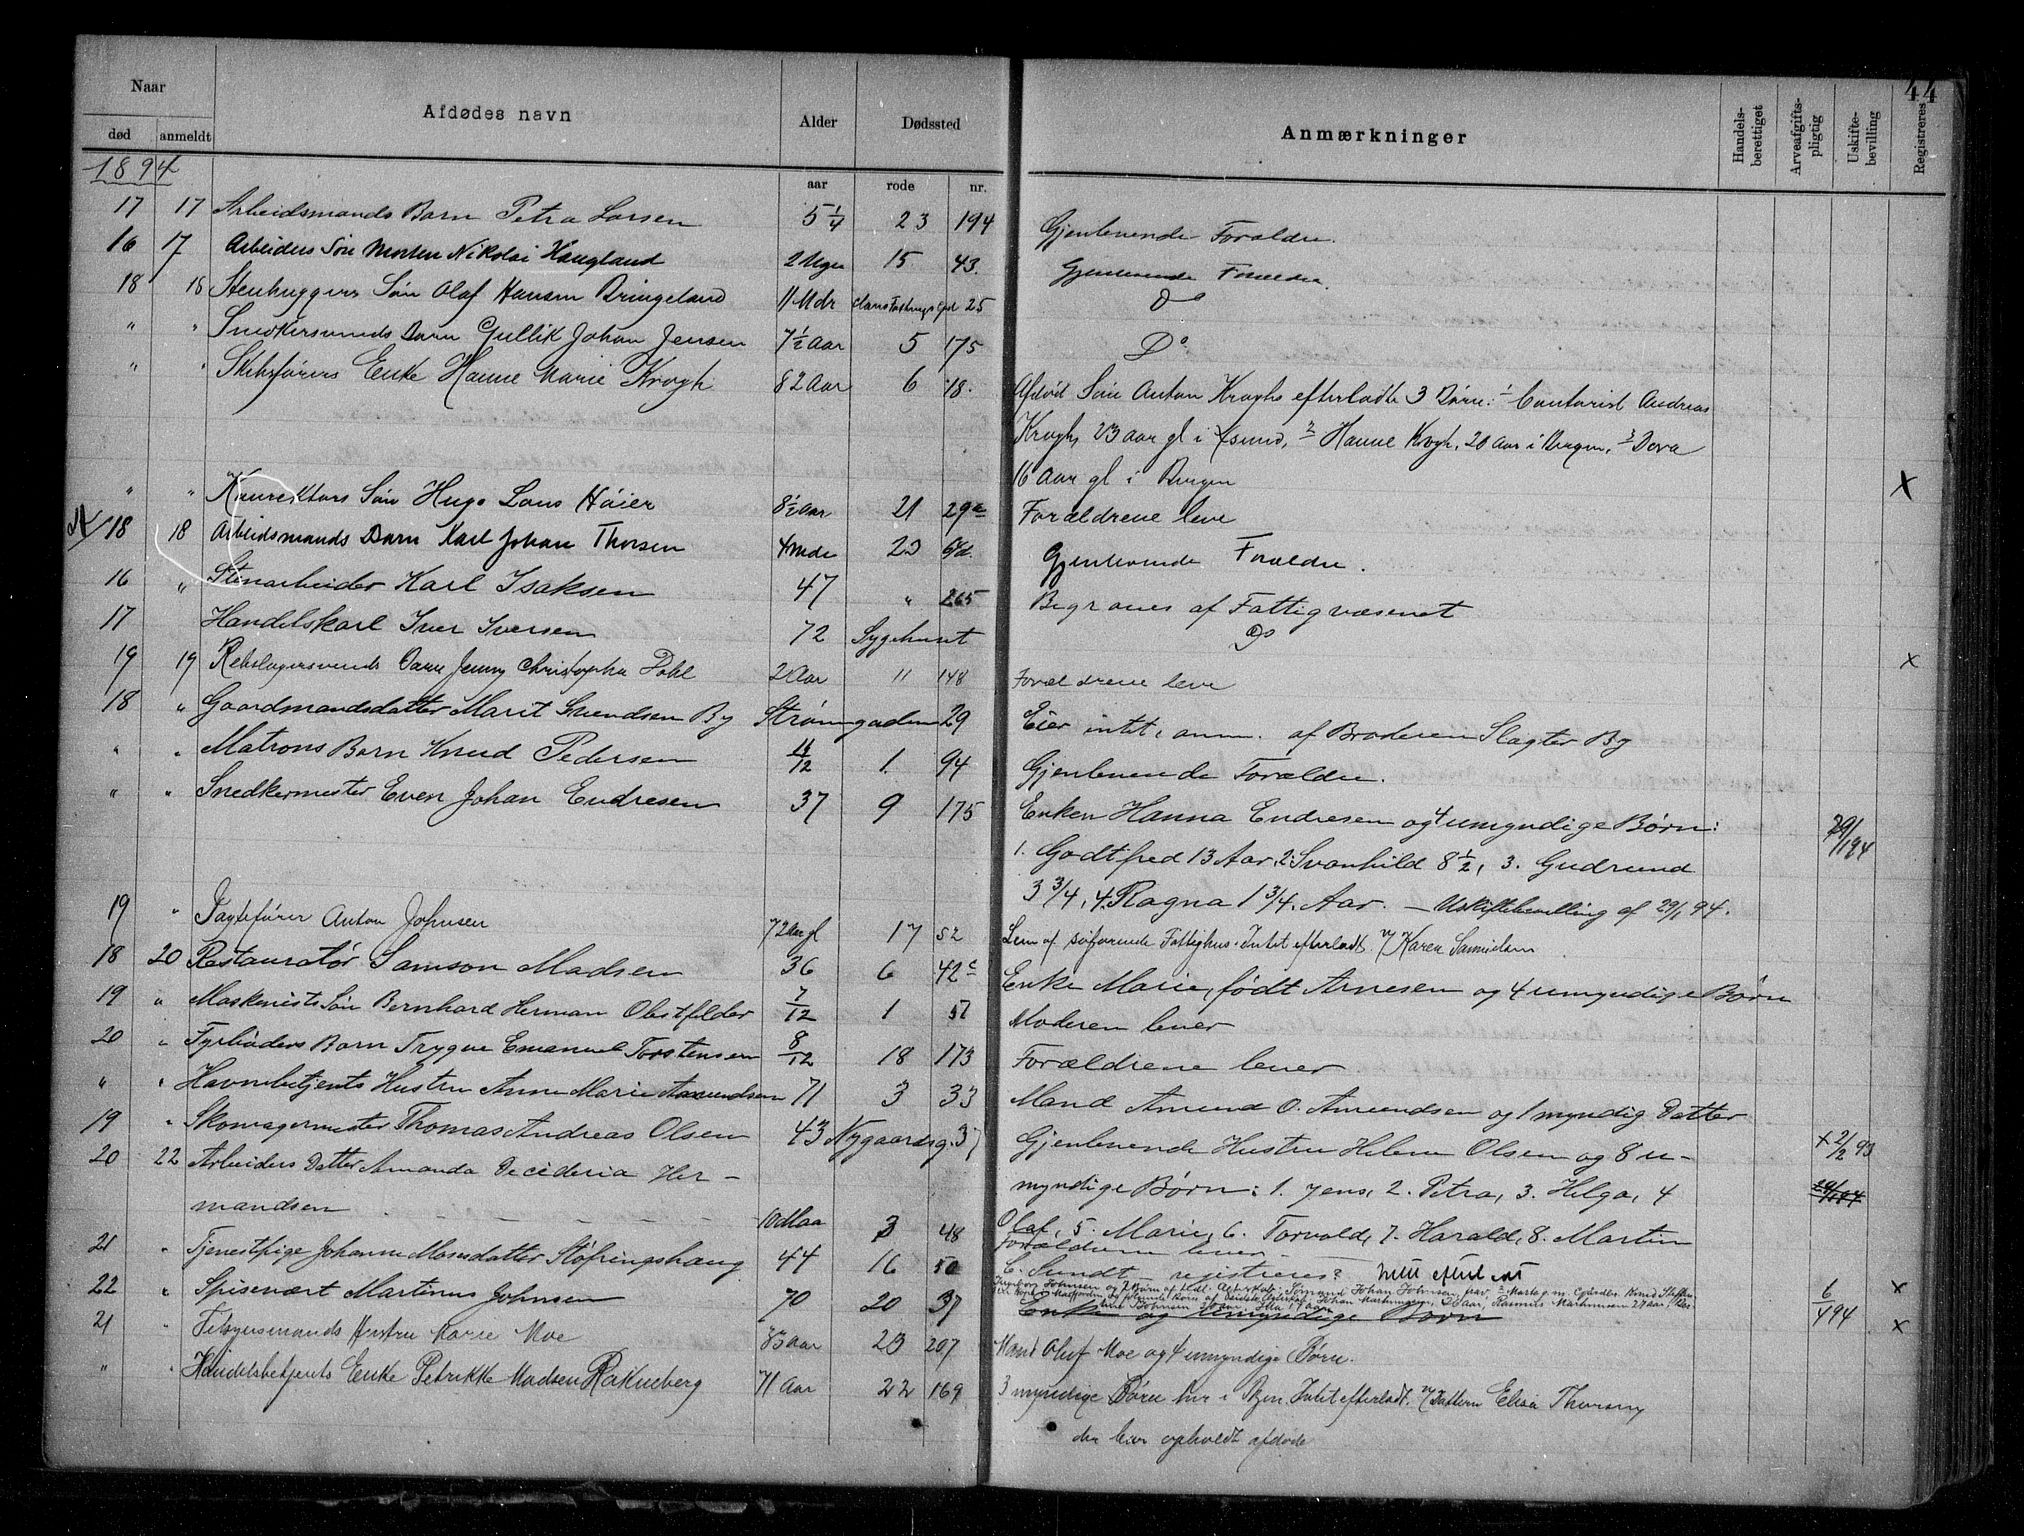 44
Naar
død anmeldt
Afdødes navn
Alder
Dødssted
Anmærkninger
Handels-berettiget
Arveafgifts-pligtig
Uskifte-bevilling
Registreres
1894
aar rode nr.
17 17 Arbeidsmands Barn Petra Larsen 5 1/4 23 194 Gjenlevende Forældre.
16 17 Arbeiders Søn Morten Nikolai Haugland 2 Uger 15 43. Gjenlevende Forældre.
18 18 Stenhuggers Søn Olaf Hansen Bringeland 11 Mdr 25 Do
" " Snedkersvends Barn Gullik Johan Jensen 7 1/2 Aar 5 175 Do
" " Skibsførers Enke Hanne Marie Krogh 82 Aar 6 18. Afdød Søn Anton Kroghs efterladte 3 Børn: 1 Contorist Andreas
Krogh, 23 aar gl i, 2 Hanne Krogh, 20 Aar i Bergen, 3 Dora
16 Aar gl i Bergen
" " Konrektors Søn Hugo Laus Høier 8 1/2 Aar 21 29a Forældrene leve X
18 18 Arbeidsmands Barn Karl Johan Thorsen 4 Mdr 23 Gjenlevende Forældre.
16 " Stenarbeider Karl Isaksen 47 " 265 Begraves af Fattigvæsenet
17 Handelskarl Iver Iversen 72 Sygehuset Do
19 19 Rebslagersvends Barn Jenny Christopha Dahl 2 Aar 11 148 Forældrene leve x
18 " Gaardmandsdatter Marit Svendsen By Strømgaden 29 Eier intet, anm. af Broderen Slagter By
" " Matros Barn Knud Pedersen 11/12 1. 94 Gjenlevende Forældre.
" " Snedkermester Even Johan Endresen 37 9 175 Enken Hanna Endresen og 4 umyndige Børn: 29/1 94
1. Godtfred 13 Aar, 2. Svanhild 8 1/2, 3. Gudrund
3 3/4, 4. Ragna 1 3/4. Aar. — Uskiftebevilling af 29/1 94.
19 " Jagtefører Anton Johnsen 72 Aar gl 17 52 Lem af søfarende Fattighus. Intet efterladt. v/ Karen Samuelsen
18 20 Restauratør Samson Madsen 36 6 42c Enke Marie, født Arnesen og 4 umyndige Børn
19 " Maskinists Søn Bernhard Herman Obstfelder 7/12 1 57 Moderen lever
20 " Fyrbøders Barn Trygve Emanuel Torstensen 8/12 18 173 Forældrene lever
" " Havnebetjents Hustru Anne Marie Amundsen 71 3 33 Mand Amund O. Amundsen og 1 myndig Datter
19 " Skomagermester Thomas Andreas Olsen 43 Nygaardsg. 37 Gjenlevende Hustru Helene Olsen og 8 u- + 2/2 93
20 22 Arbeiders Datter Amanda Decideria Her- myndige Børn: 1. Jens, 2. Petra, 3. Helga, 4
mandsen 10 Maa 3 48 Olaf, 5. Marie, 6. Torvald, 7. Harald, 8. Martin
Forældrene lever
21 " Tjenestpige Johanne Monsdatter Støfringshaug 44 16 50 C. Sundt registreres? Intet efterladt x
22 " Spisevært Martinus Johnsen 70 20 37 Enke og umyndige Børn 6/4 94
21 " Hustru Karie Moe 33 aar 23 207 Mand Oluf Moe og 4 umyndige Børn. x
" " Handelsbetjents Enke Petrikke Madsen Rakneberg 71 Aar 22 169 3 myndige Børn her i Byen. Intet efterladt. v/ Datteren Elisa Thorsen
der har opholdt afdøde